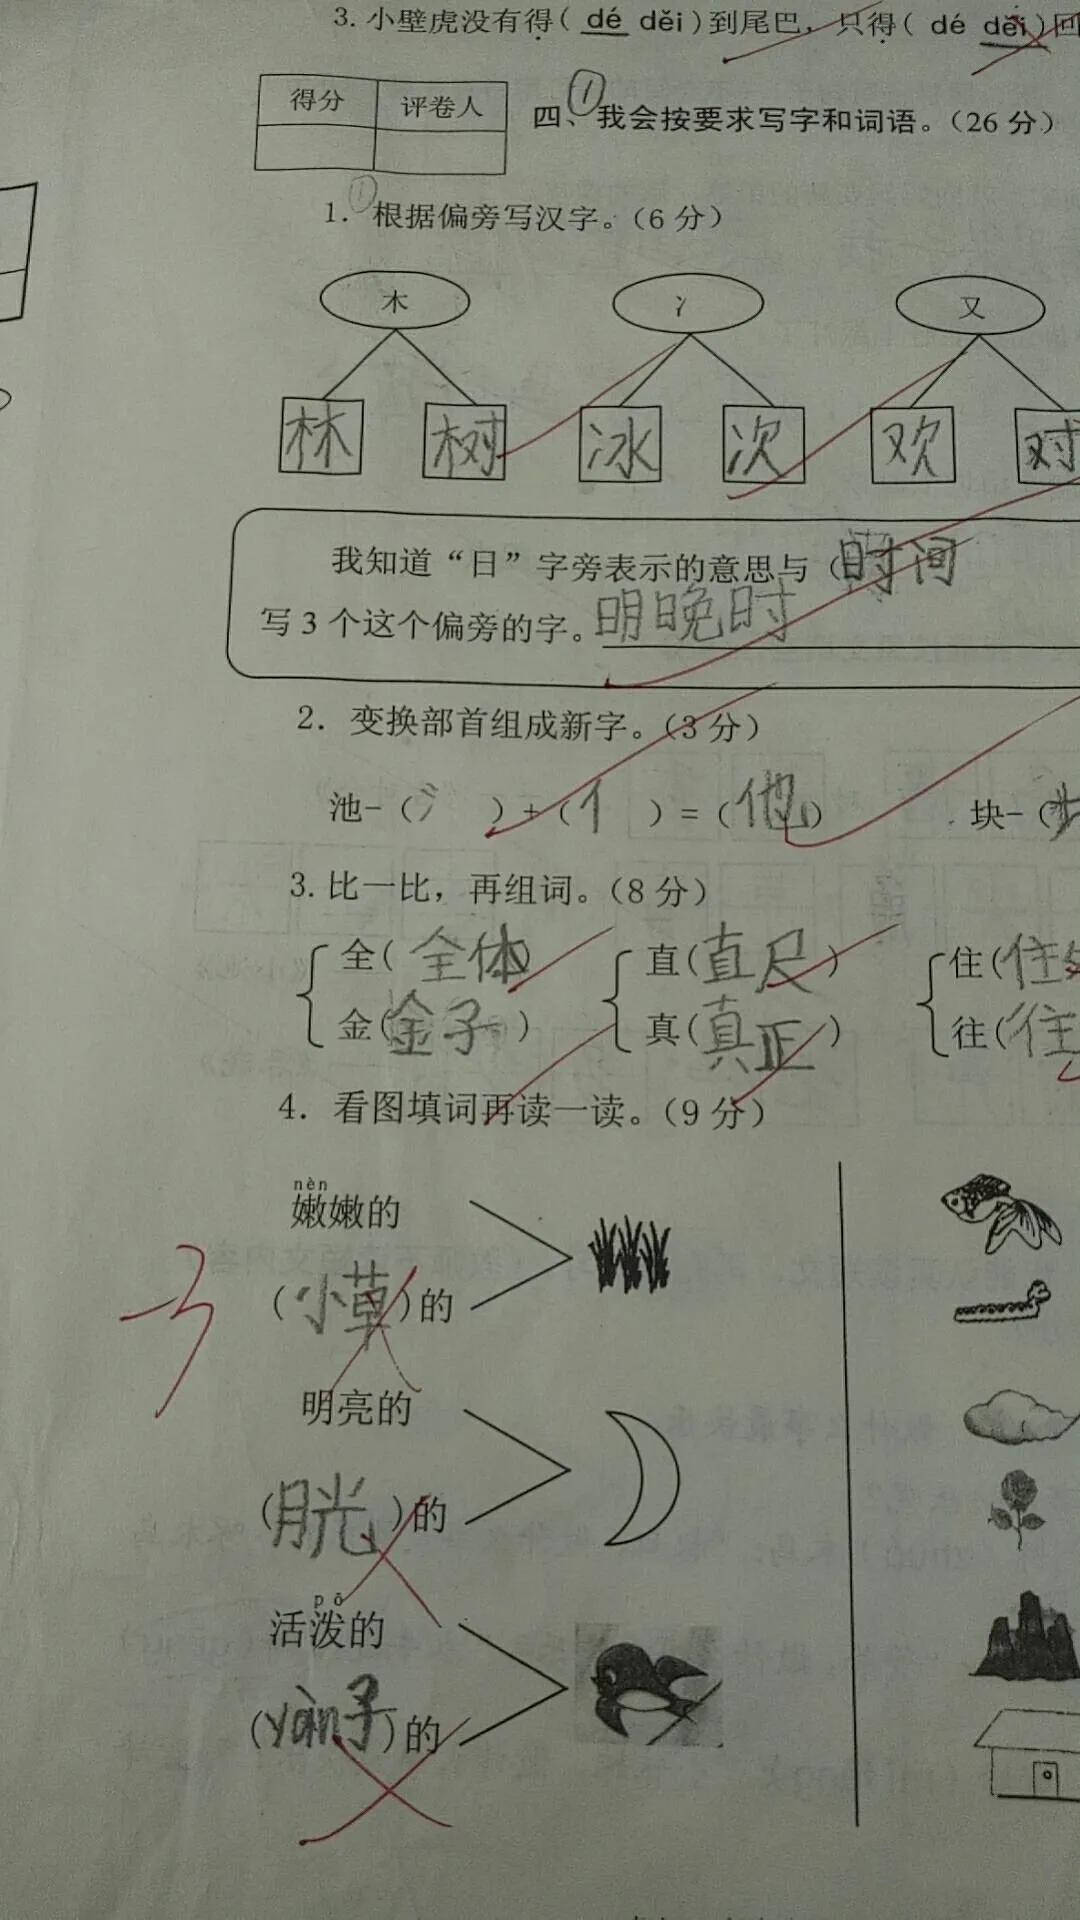 3.小壁虎没有得( dé děi)到尾巴，只得( dé děi)回
得分 评卷人
四、我会按要求写字和词语。（26分）
①
1. 根据偏旁写汉字。（6分）
①
木 冫 又
林 树 冰 次 欢 对
我知道“日”字旁表示的意思与（时间
写3个这个偏旁的字。明晚时
2. 变换部首组成新字。（3分）
池-（氵）+（亻）=（他） 块-（
3. 比一比，再组词。（8分）
全(全体) 直(直尺) 住(住
金(金子) 真(真正) 往(住
4. 看图填词再读一读。（9分）
nèn
嫩嫩的
(小草)的
明亮的
( )的
pō
活泼的
(yàn子)的